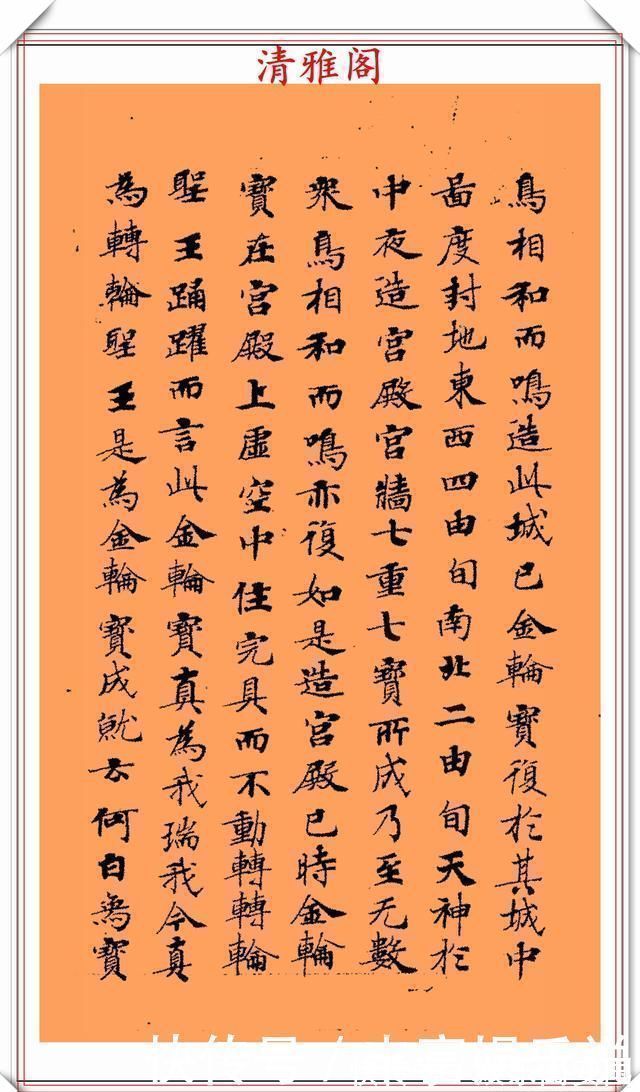 清雅阁
鳥相和而鳴造此城已金輪寶復於其城中
啚度封地東西四由旬南北二由旬天神於
中夜造宮殿宮牆七重七寶所成乃至无數
眾鳥相和而鳴亦復如是造宮殿已時金輪
寶在宮殿上虛空中住完具而不動轉轉輪
聖王踊躍而言此金輪寶真為我瑞我今真
為轉輪聖王是為金輪寶成就云何白為寶